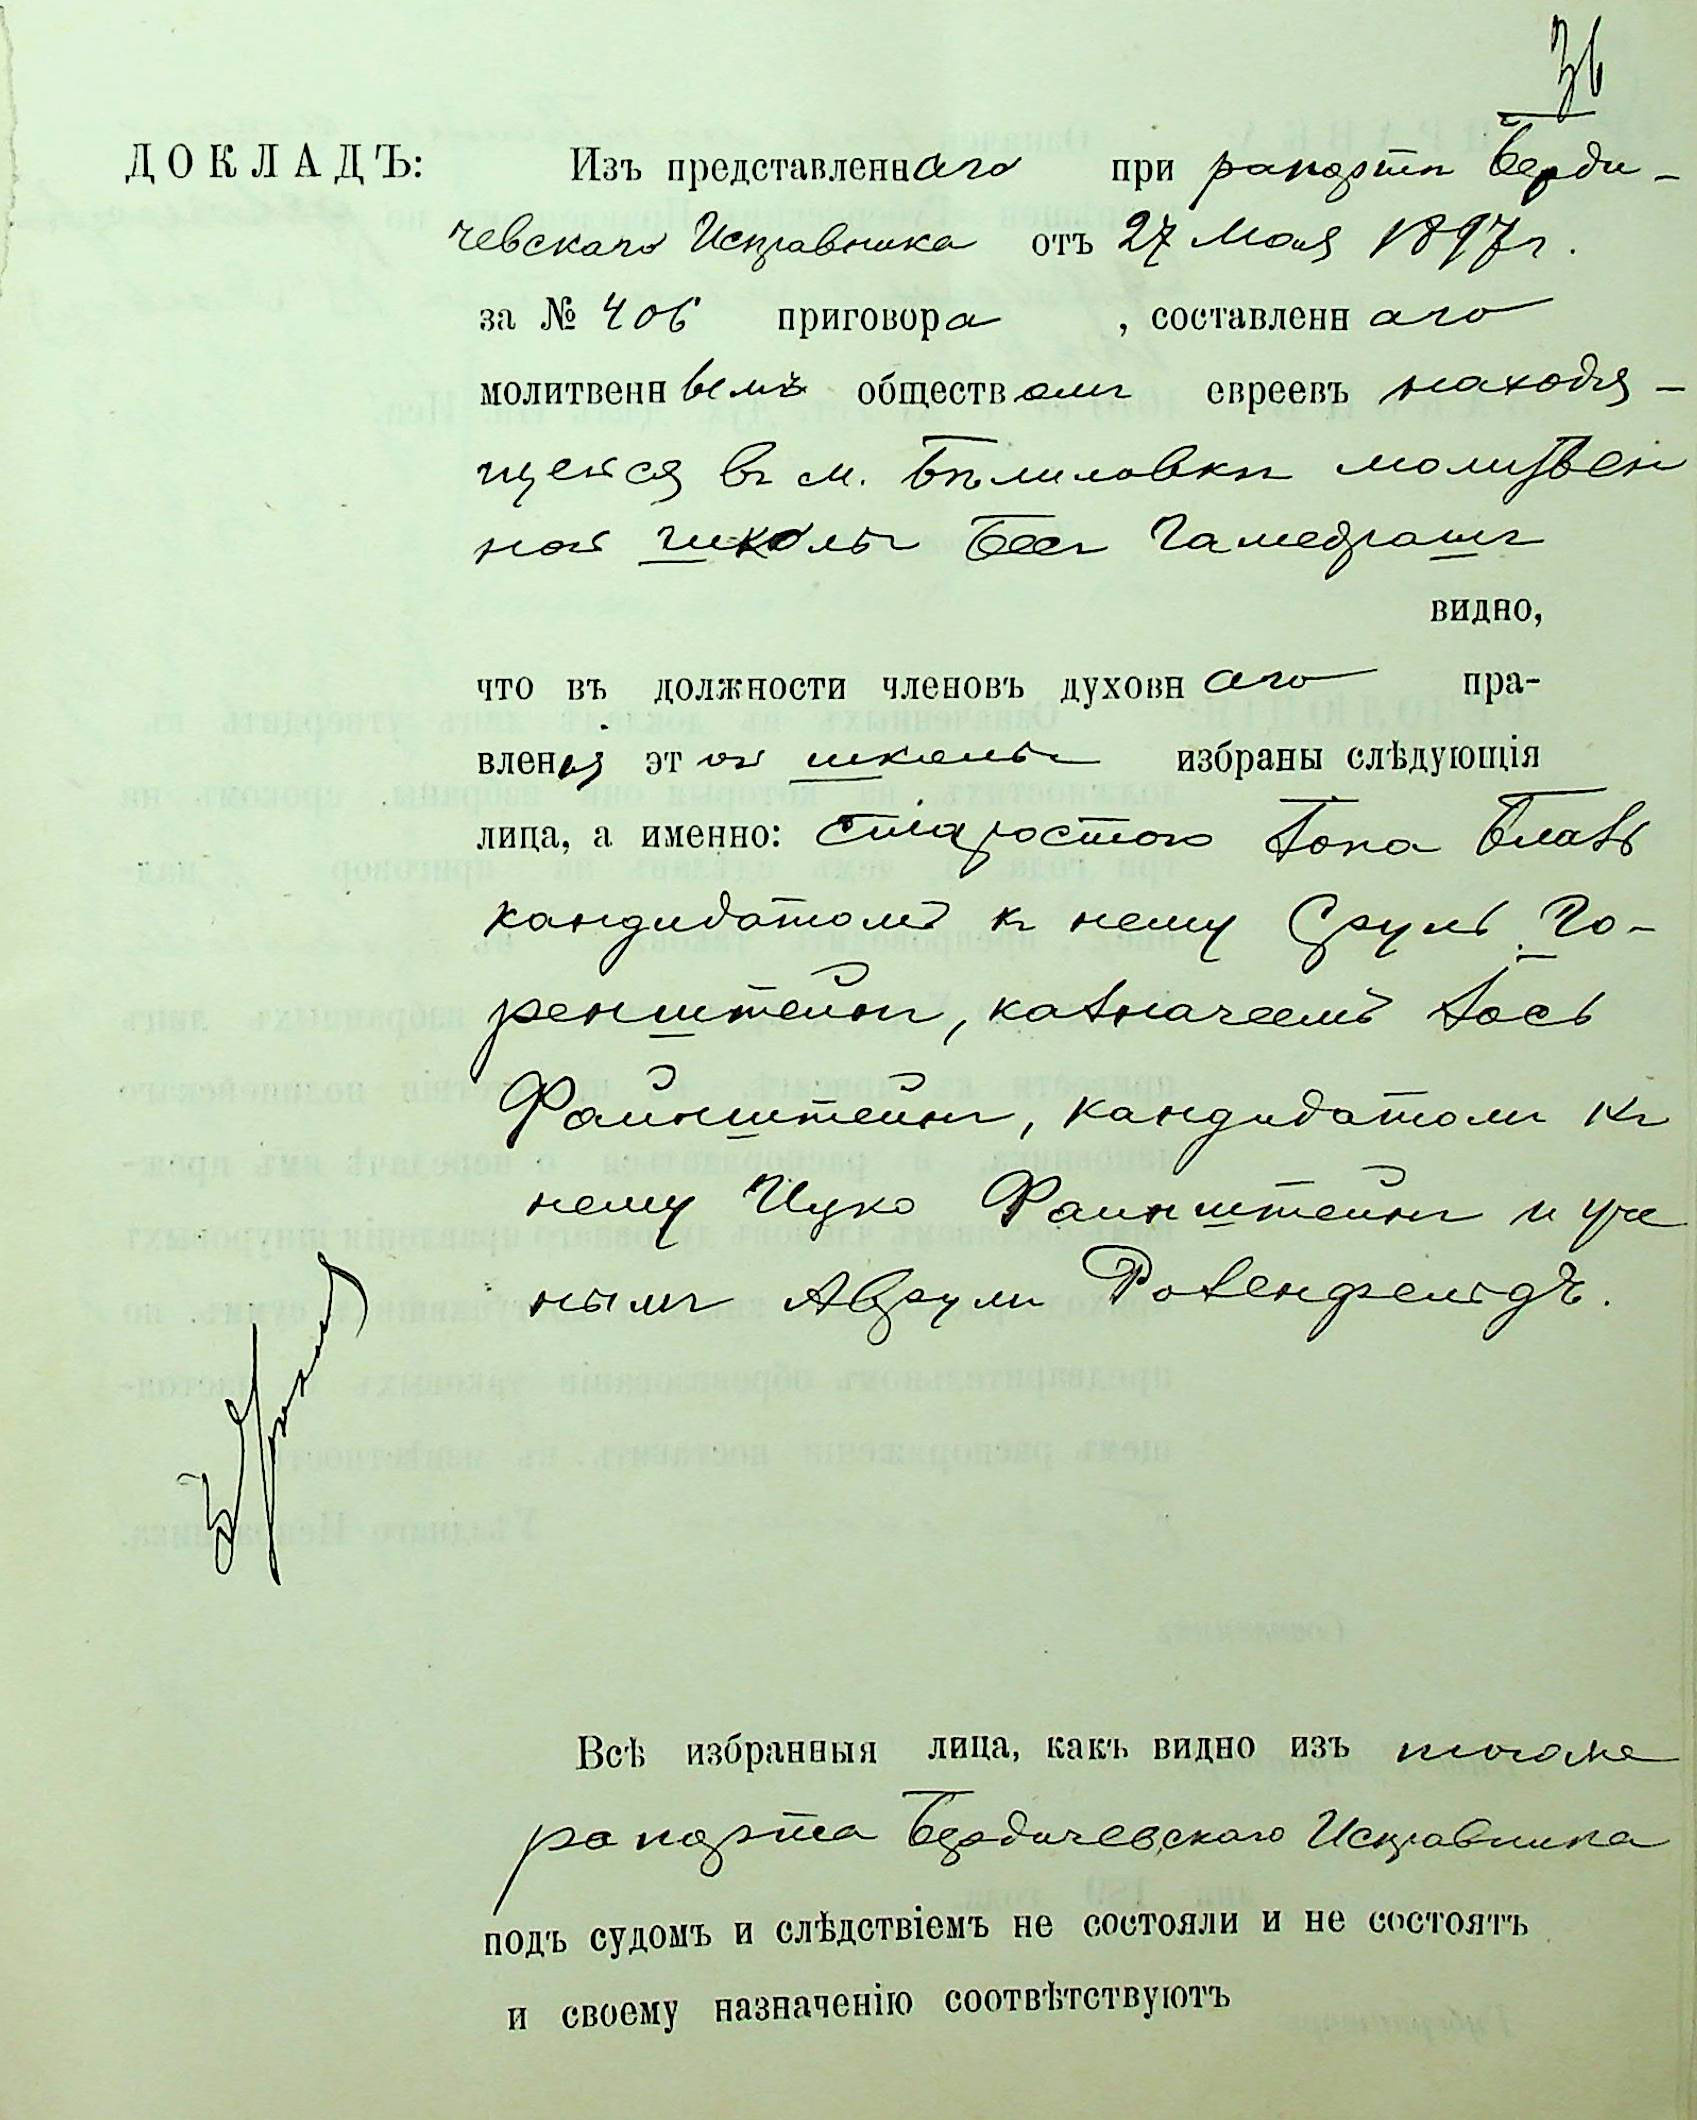 36
ДОКЛАДЪ: Изъ представленнаго при рапортѣ Берди-
чевскаго Исправника отъ 27 Мая 1897 г.
за № 406 приговора, составленнаго
молитвеннымъ обществомъ евреевъ находя-
щейся въ м. Бѣлиловкѣ молитвен
ной школы Бесъ Гамедрашъ
видно,
что въ должности членовъ духовнаго пра-
вленія этой школы избраны слѣдующія
лица, а именно: старостою Зопа
кандидатомъ къ нему Сруль Го-
ренштейнъ, казначеемъ Зось
Файнштейнъ, кандидатомъ къ
нему Ицко Файнштейнъ и уче
нымъ Аврумъ Розенфельдъ.
Всѣ избранныя лица, какъ видно изъ тогоже
рапорта Бердичевскаго Исправника
подъ судомъ и слѣдствіемъ не состояли и не состоятъ
и своему назначенію соотвѣтствуютъ